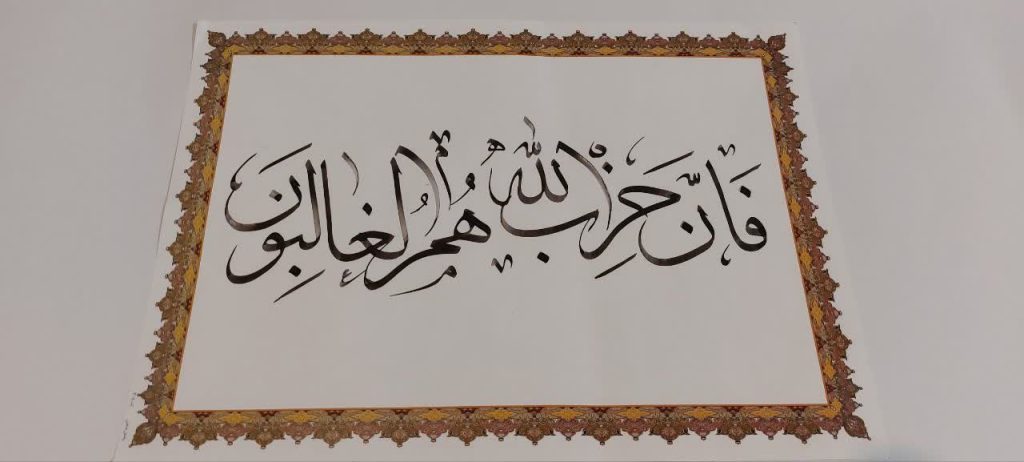 فَاِنَّ حِزْبَ اللّٰهِ هُمُ الْغَالِبُونَ